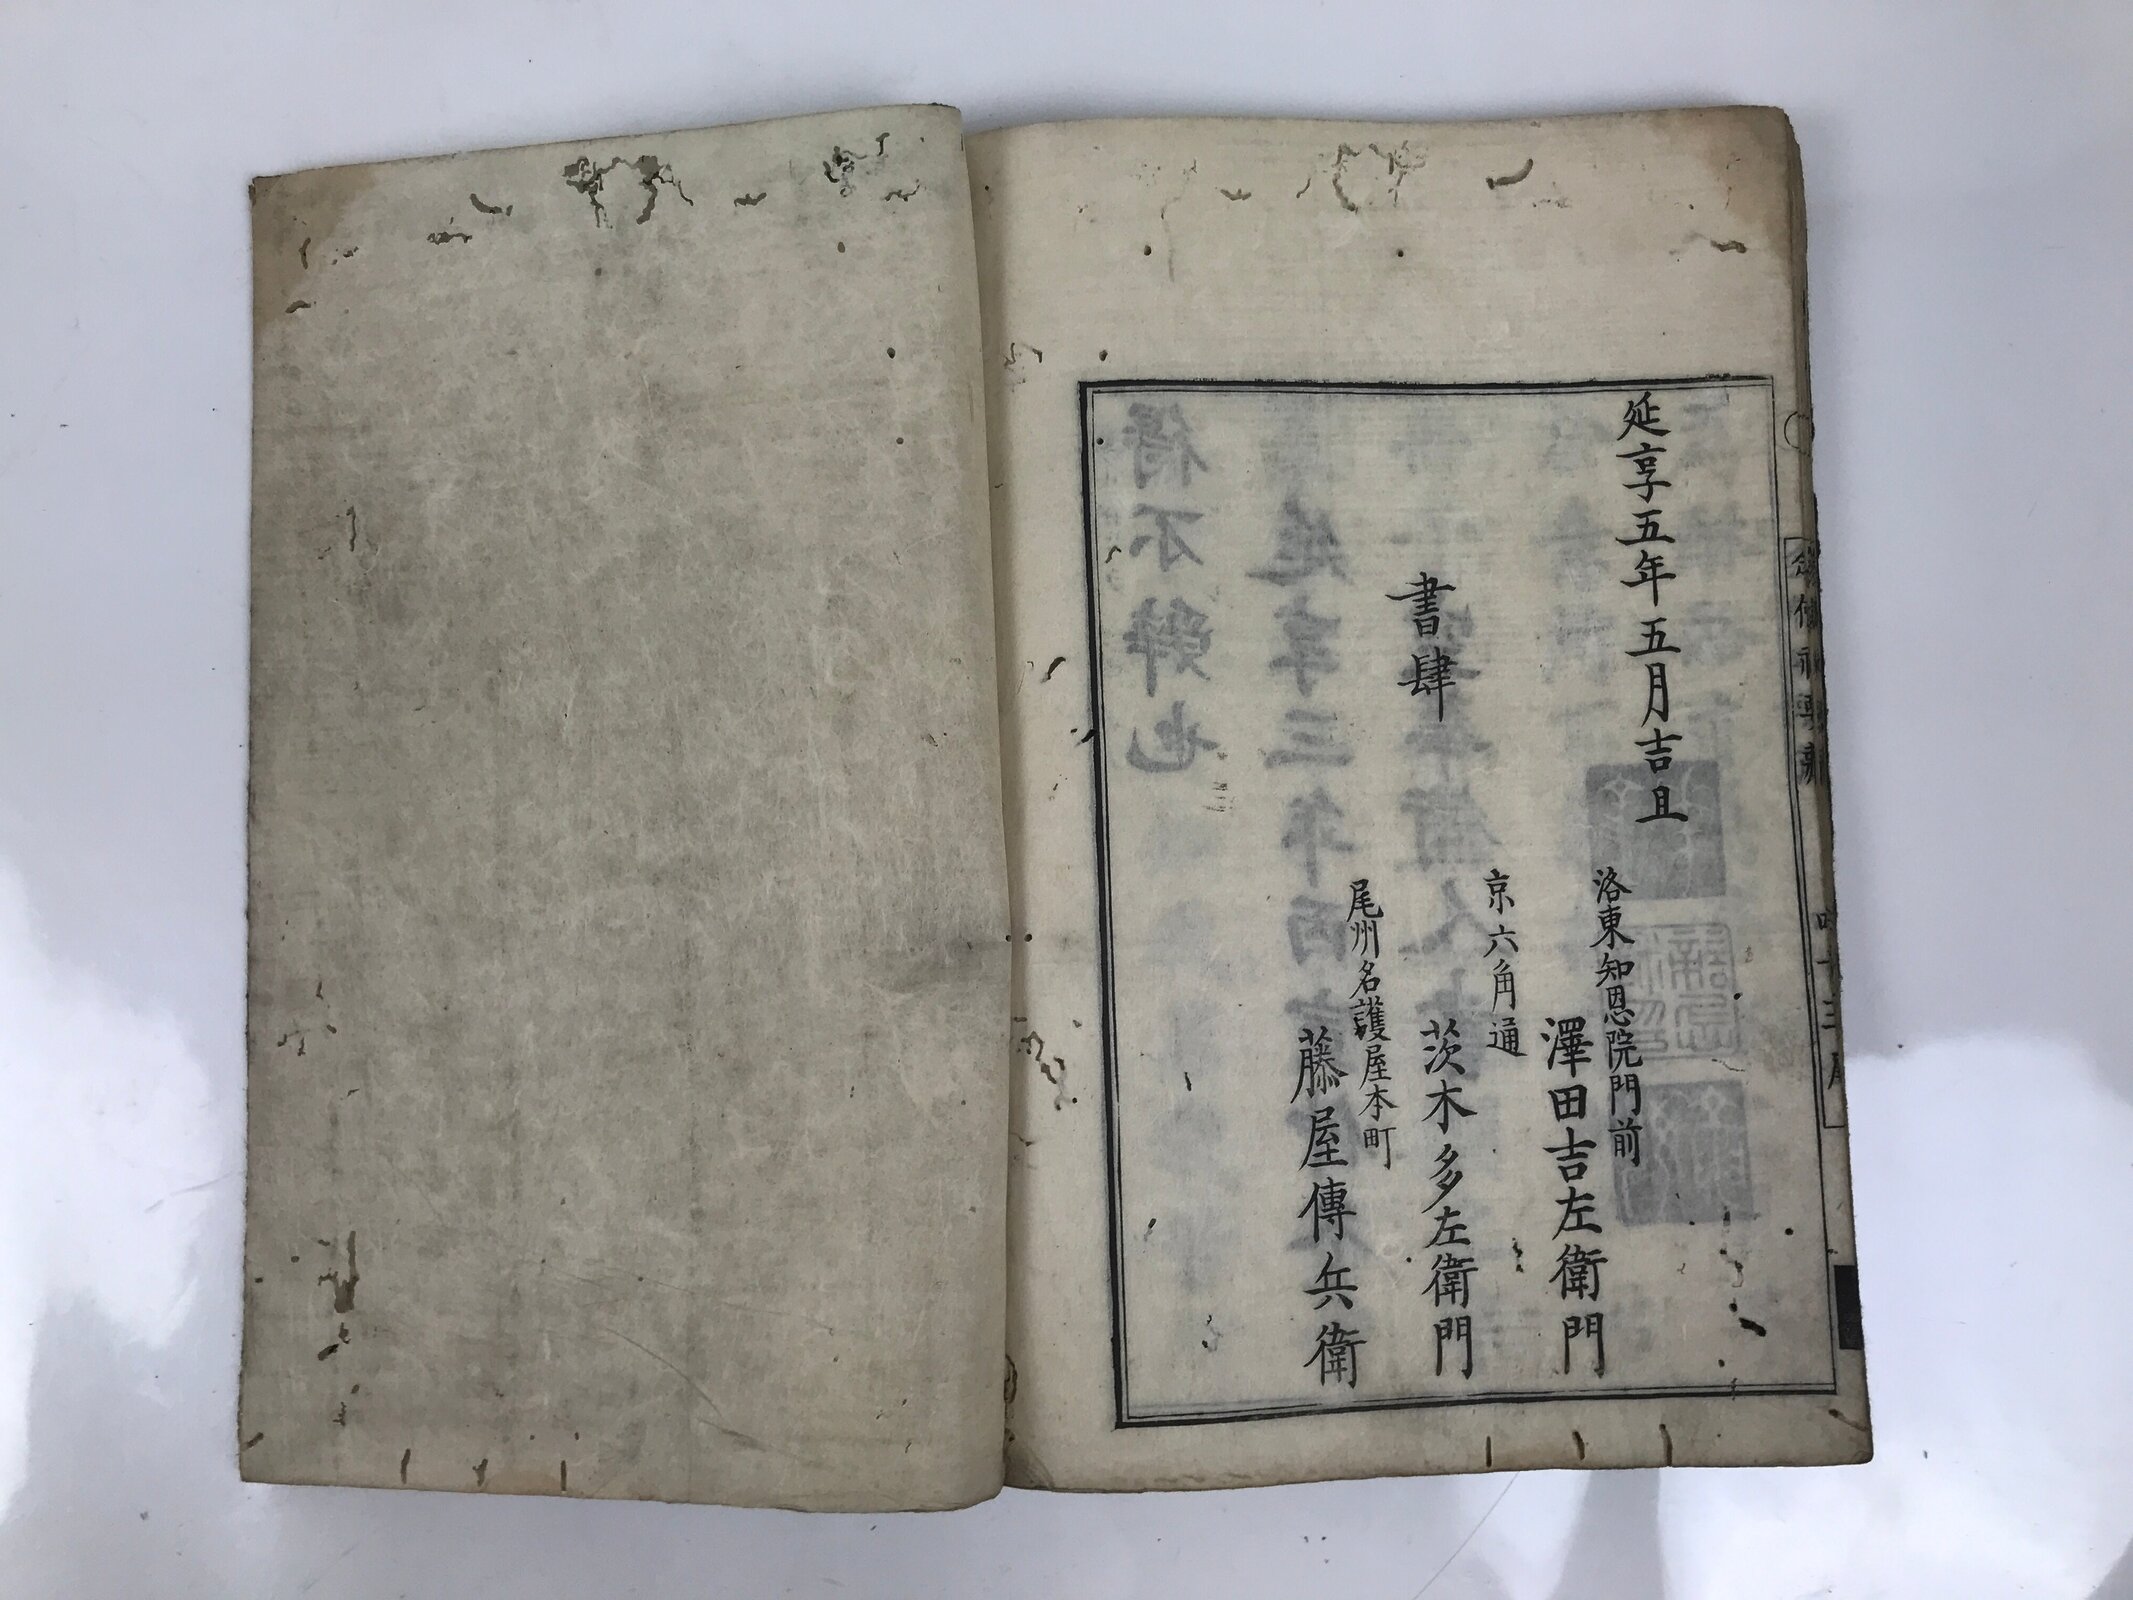 延享五年五月吉旦
書肆
洛東知恩院門前
澤田吉左衛門
京六角通
茨木多左衛門
尾州名護屋本町
藤屋傳兵衛